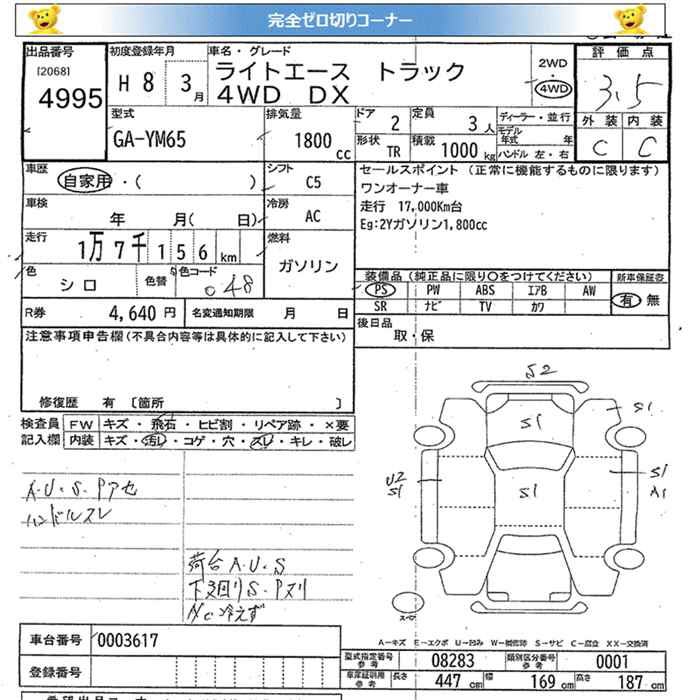 完全ゼロ切りコーナー
出品番号 初度登録年月 車名・グレード 評価点
[2068] H 8 3月 ライトエース トラック 2WD・4WD 3.5
4995 4WD DX
外装 内装
型式 排気量 ドア 2 定員 3人 ディーラー・並行 C C
GA-YM65 1800cc 形状 TR 積載 1000kg モデル年式 年
ハンドル 左・右
車歴 自家用・( ) シフト C5 セールスポイント (正常に機能するものに限ります)
ワンオーナー車
車検 年 月( 日) 冷房 AC 走行 17,000Km台
Eg:2Yガソリン1,800cc
走行 1万7千156km 燃料 ガソリン
色 シロ 色替 色コード 048 装備品 (純正品に限り○をつけてください) 新車保証書
PS PW ABS エアB AW 有・無
R券 4,640円 名変通知期限 月 日 SR ナビ TV カワ
後日品 取・保
注意事項申告欄(不具合内容等は具体的に記入して下さい)
修復歴 有 〔箇所 〕
検査員 FW キズ・飛石・ヒビ割・リペア跡・×要
記入欄 内装 キズ・汚レ・コゲ・穴・スレ・キレ・破レ
S2
S1 S1
U2 S1 S1 S1 A1
A.U.S.Pアセ
ハンドルスレ
荷台A.U.S
下廻りS.Pヌリ
A/C冷えず
スペア
A−キズ E−エクボ U−凹み W−補修跡 S−サビ C−腐食 XX−交換済
車台番号 0003617
型式指定番号 参考 08283 類別区分番号 参考 0001
登録番号
車庫証明用 参考 長さ 447cm 幅 169cm 高さ 187cm